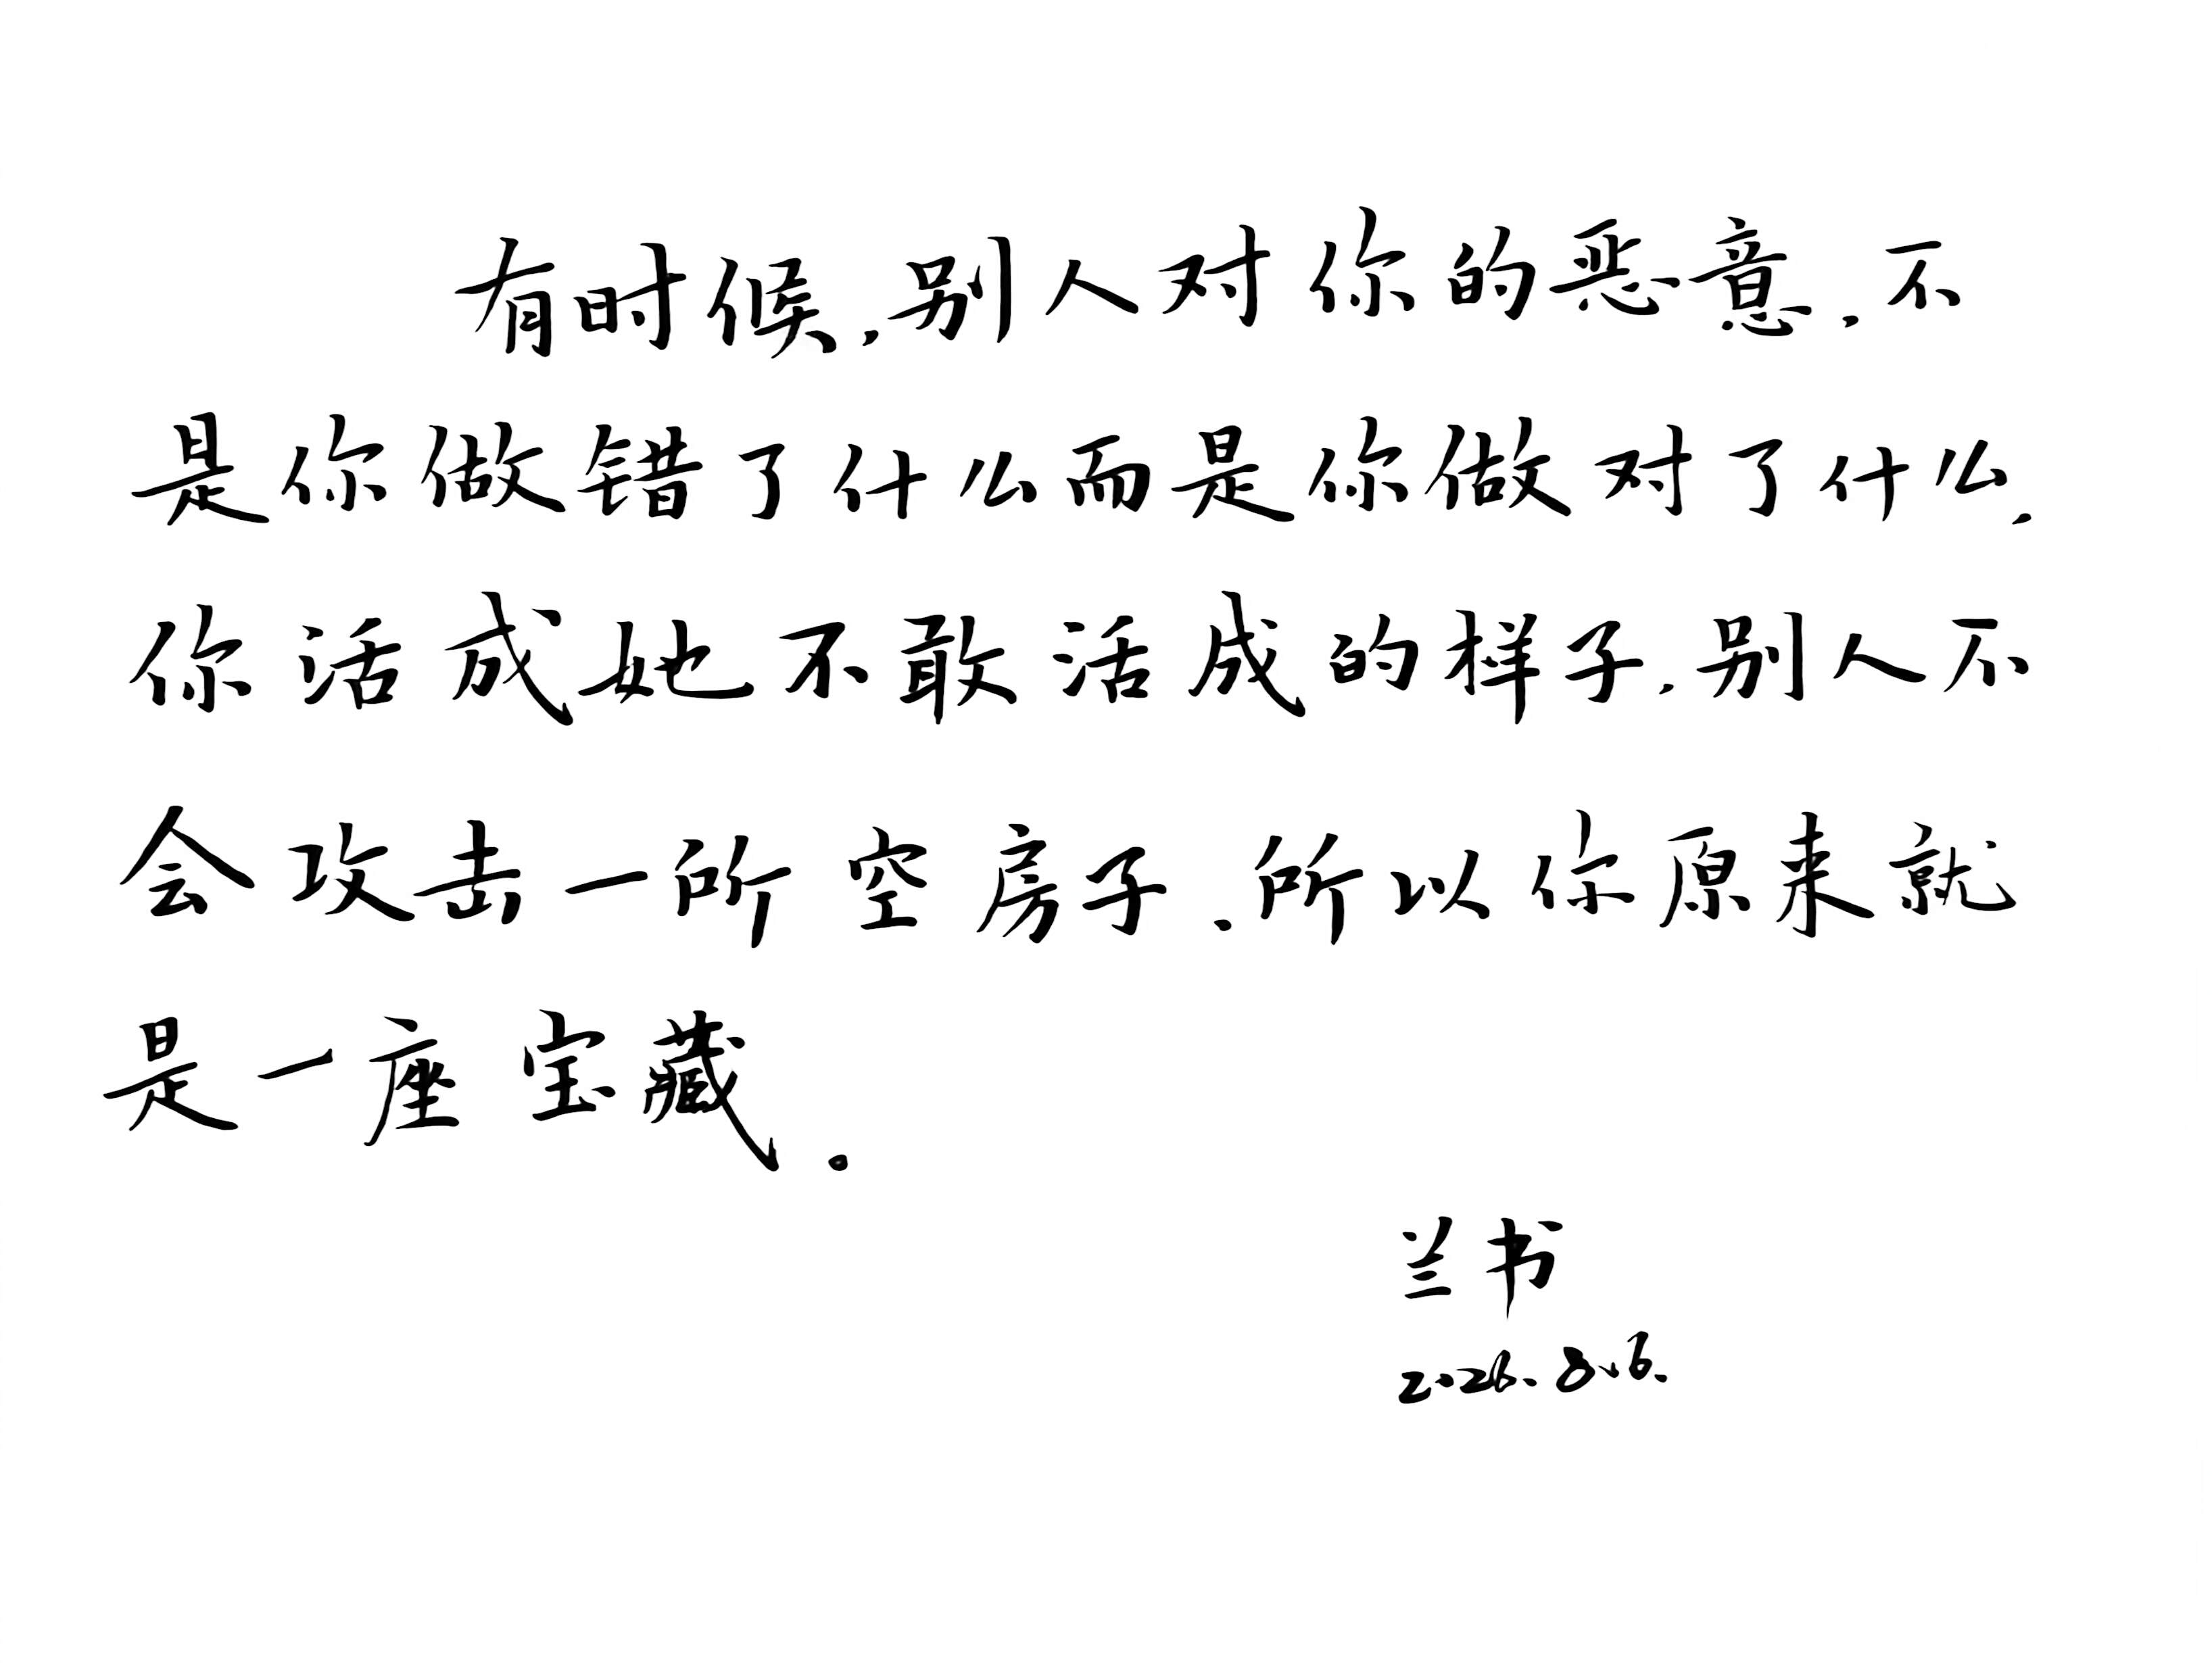 有时候,别人对你的恶意,不
是你做错了什么而是你做对了什么,
你活成她不敢活成的样子,别人不
会攻击一所空房子,所以你原来就
是一座宝藏。
兰书
2026.8.6.